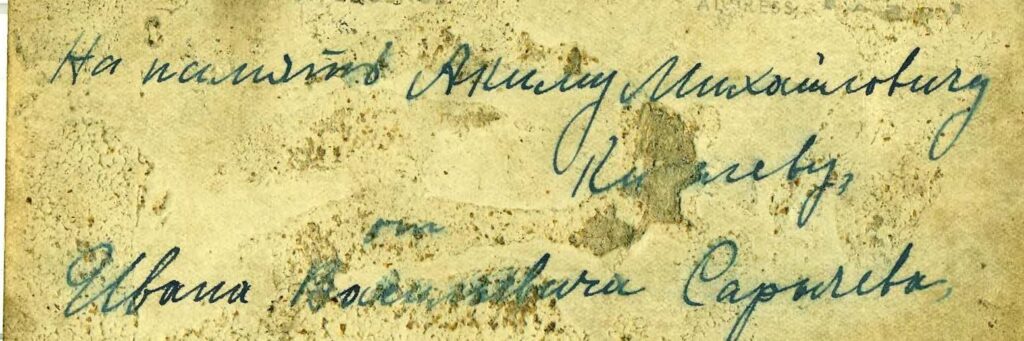 ADDRESS
На память Акиму Михайловичу
от
Ивана Васильевича Сарычева,